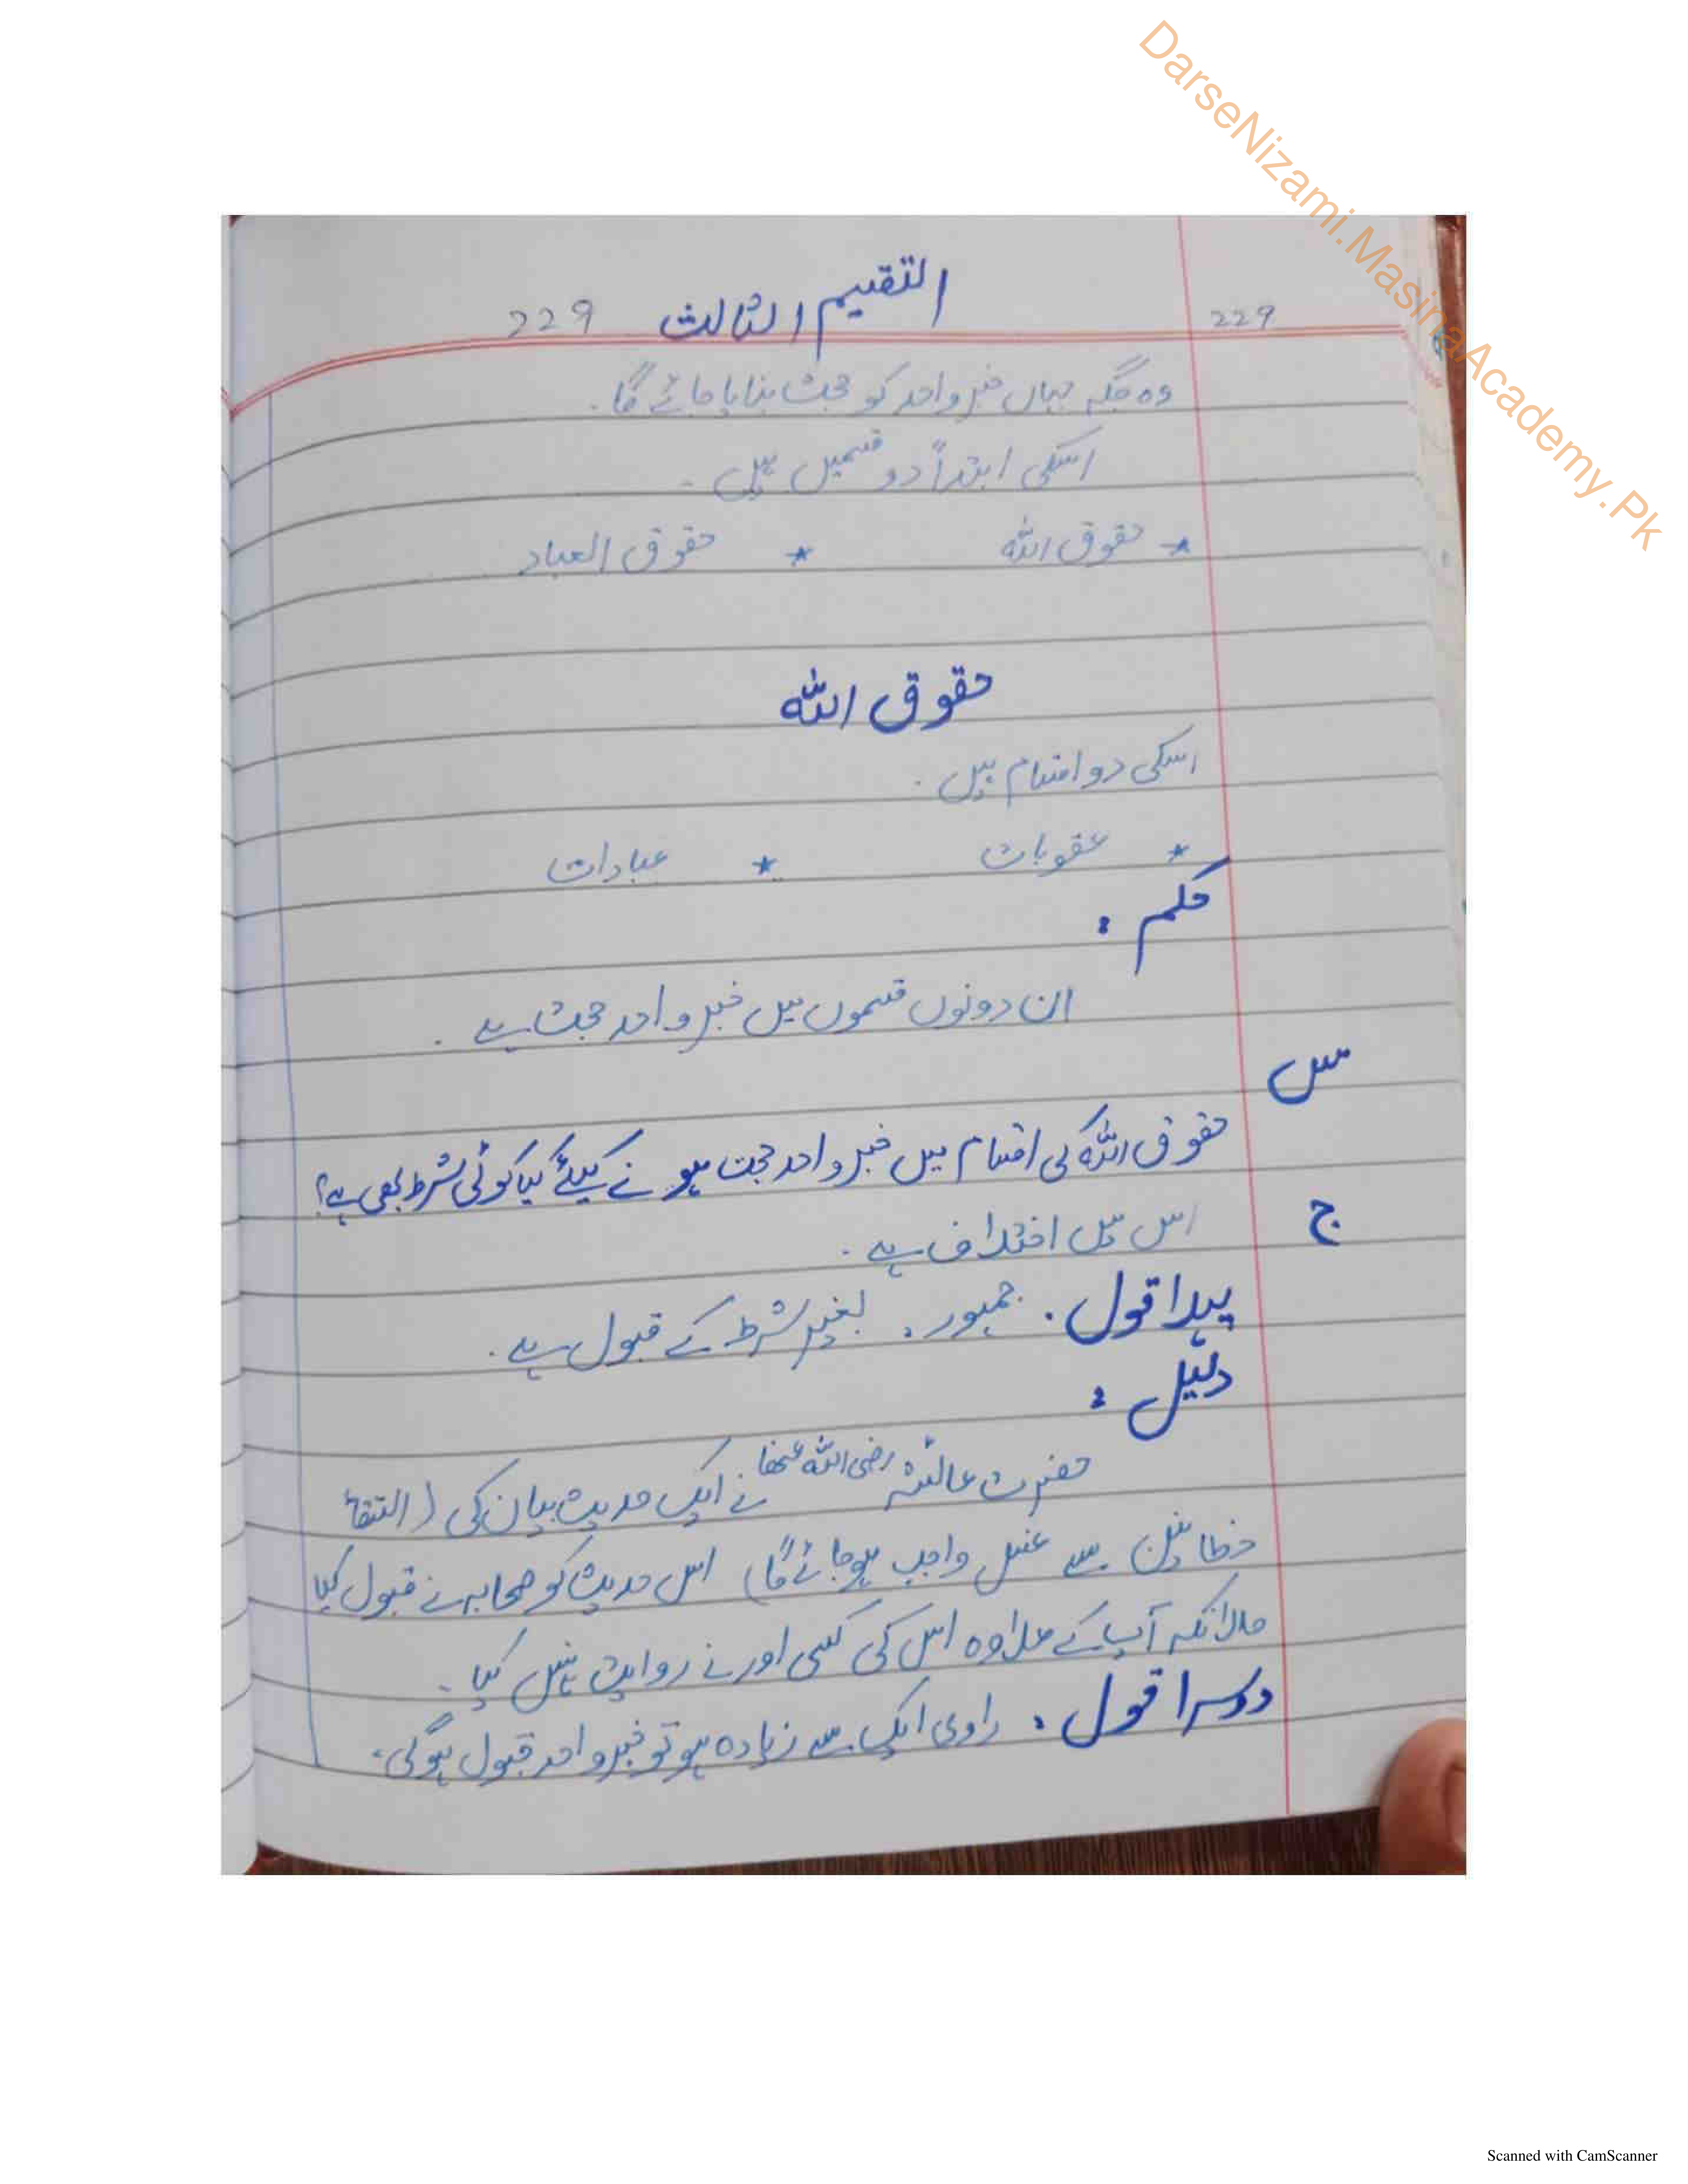 DarseNizami.MasinaAcademy.Pk
229 التقسیم الثالث 229
وہ جگہ جہاں خبر واحد کو حجت بنایا جائے گا۔
اسکی ابتداً دو قسمیں ہیں۔
* حقوق اللہ * حقوق العباد
حقوق اللہ
اسکی دو اقسام ہیں۔
* عقوبات * عبادات
حکم :
ان دونوں قسموں میں خبر واحد حجت ہے۔
س
حقوق اللہ کی اقسام میں خبر واحد حجت ہونے کیلئے کیا کوئی شرط بھی ہے؟
ج اس میں اختلاف ہے۔
پہلا قول۔ جمہور۔ بغیر شرط کے قبول ہے۔
دلیل :
حضرت عائشہ رضی اللہ عنھا نے ایک حدیث بیان کی (التقائے
خطانین سے غسل واجب ہوجائےگا) اس حدیث کو صحابہ نے قبول کیا
حالانکہ آپ کے علاوہ اس کی کسی اور نے روایت نہیں کیا۔
دوسرا قول۔ راوی ایک سے زیادہ ہو تو خبر واحد قبول ہوگی،
Scanned with CamScanner